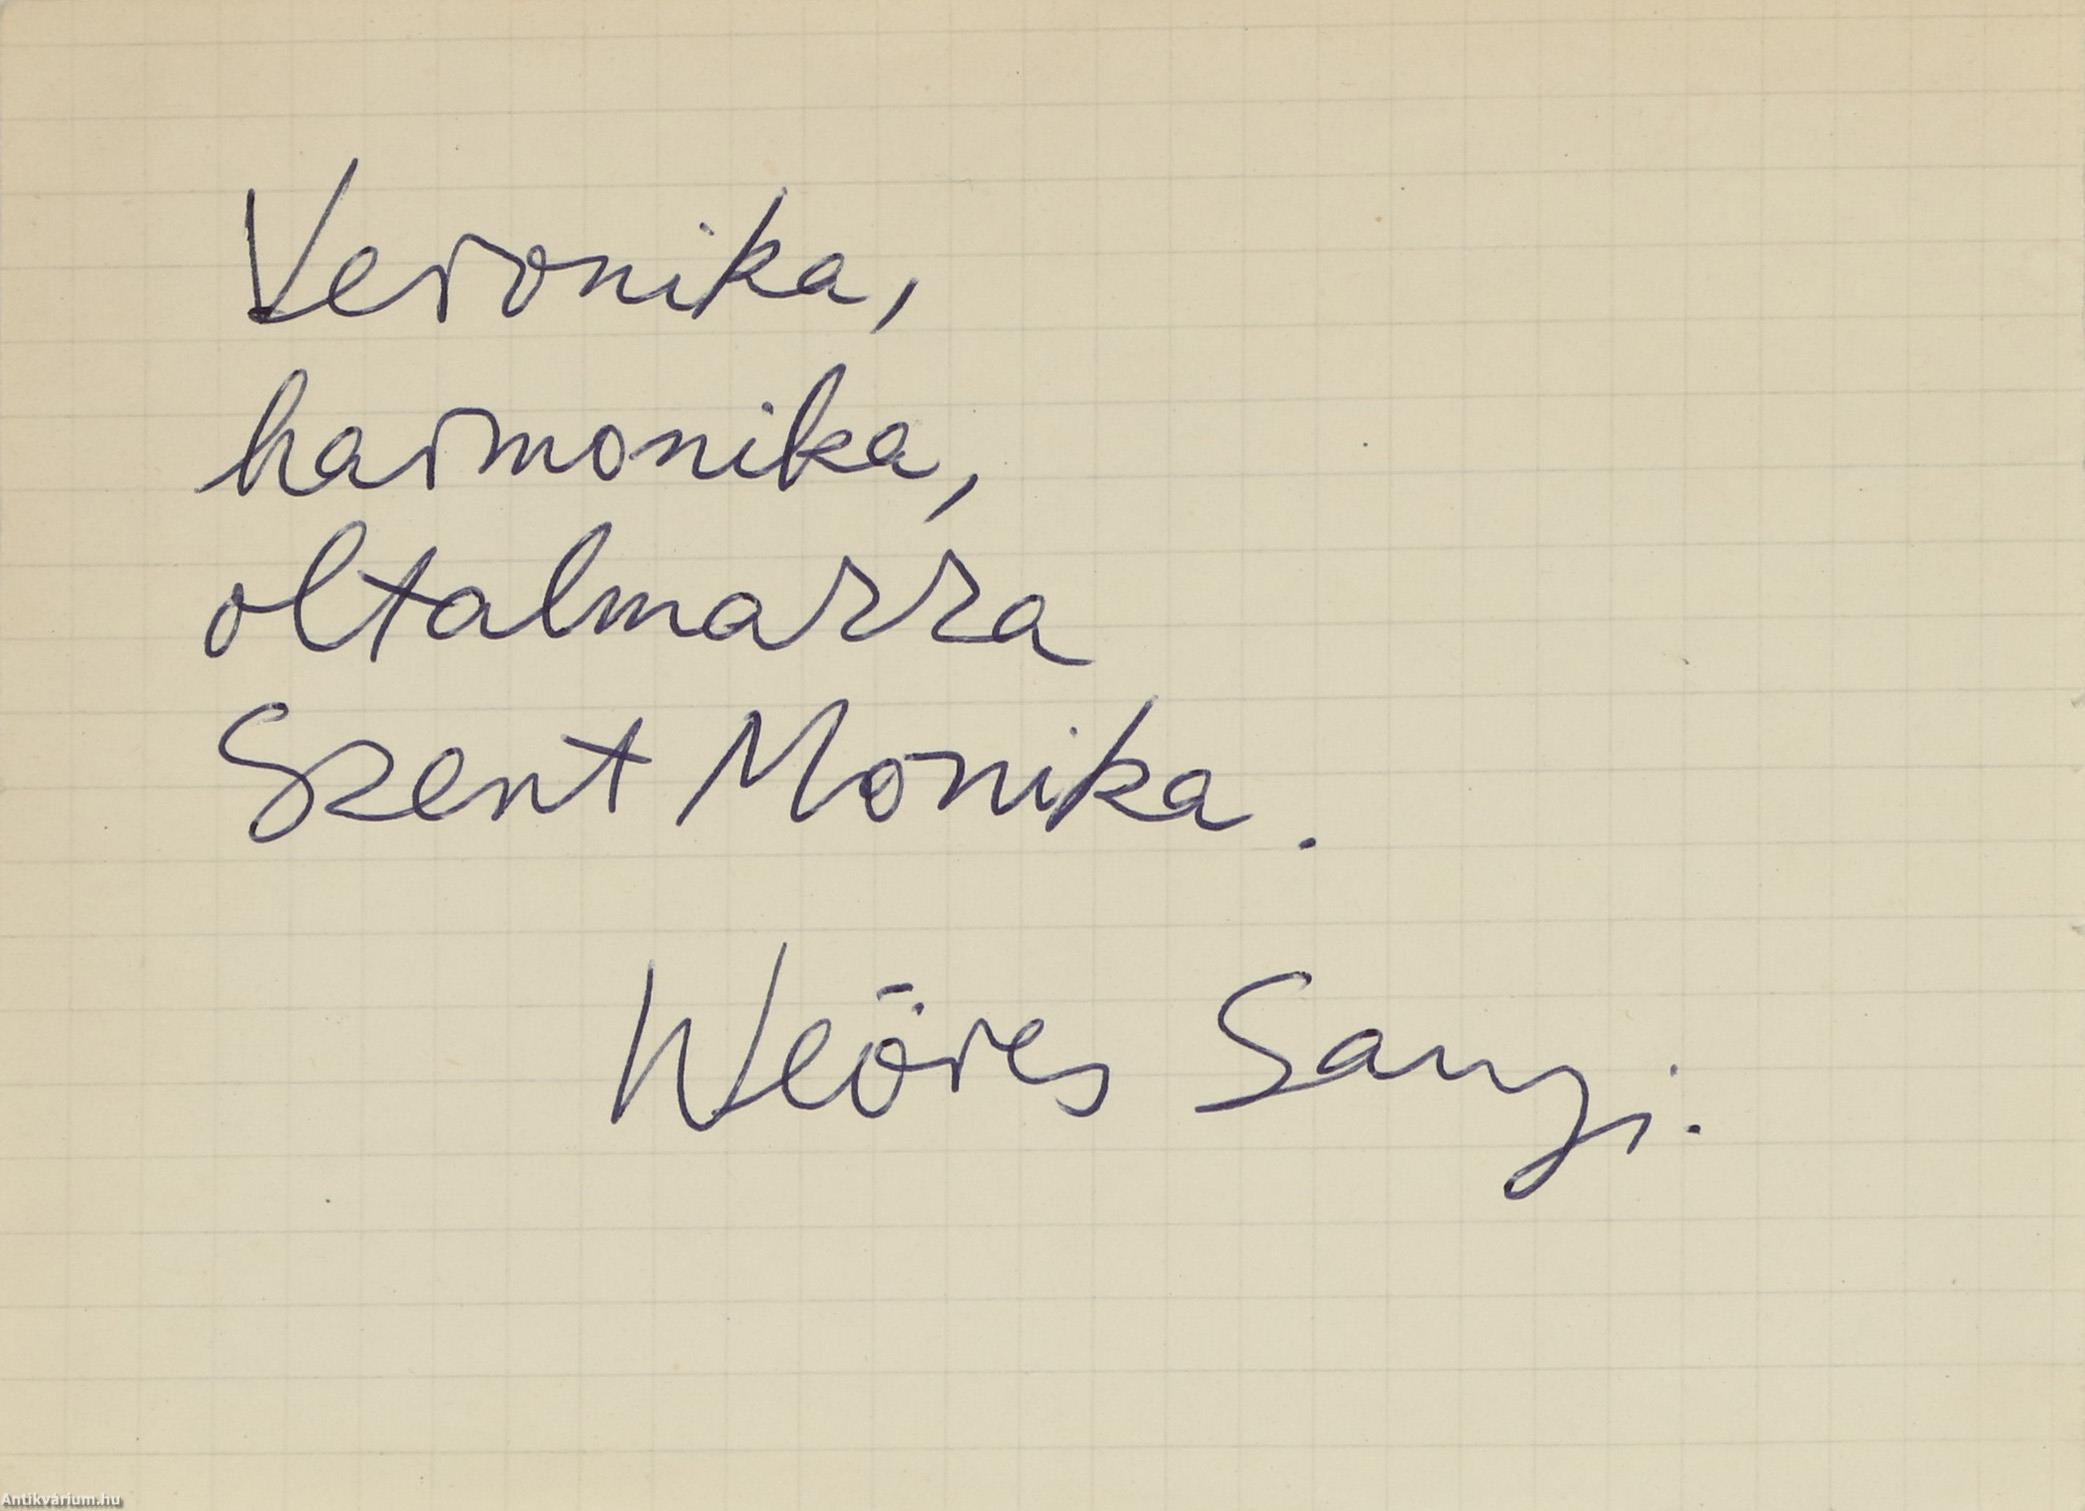 Veronika,
harmonika,
oltalmazza
Szent Monika.
Weöres Sanyi.
Antikvárium.hu